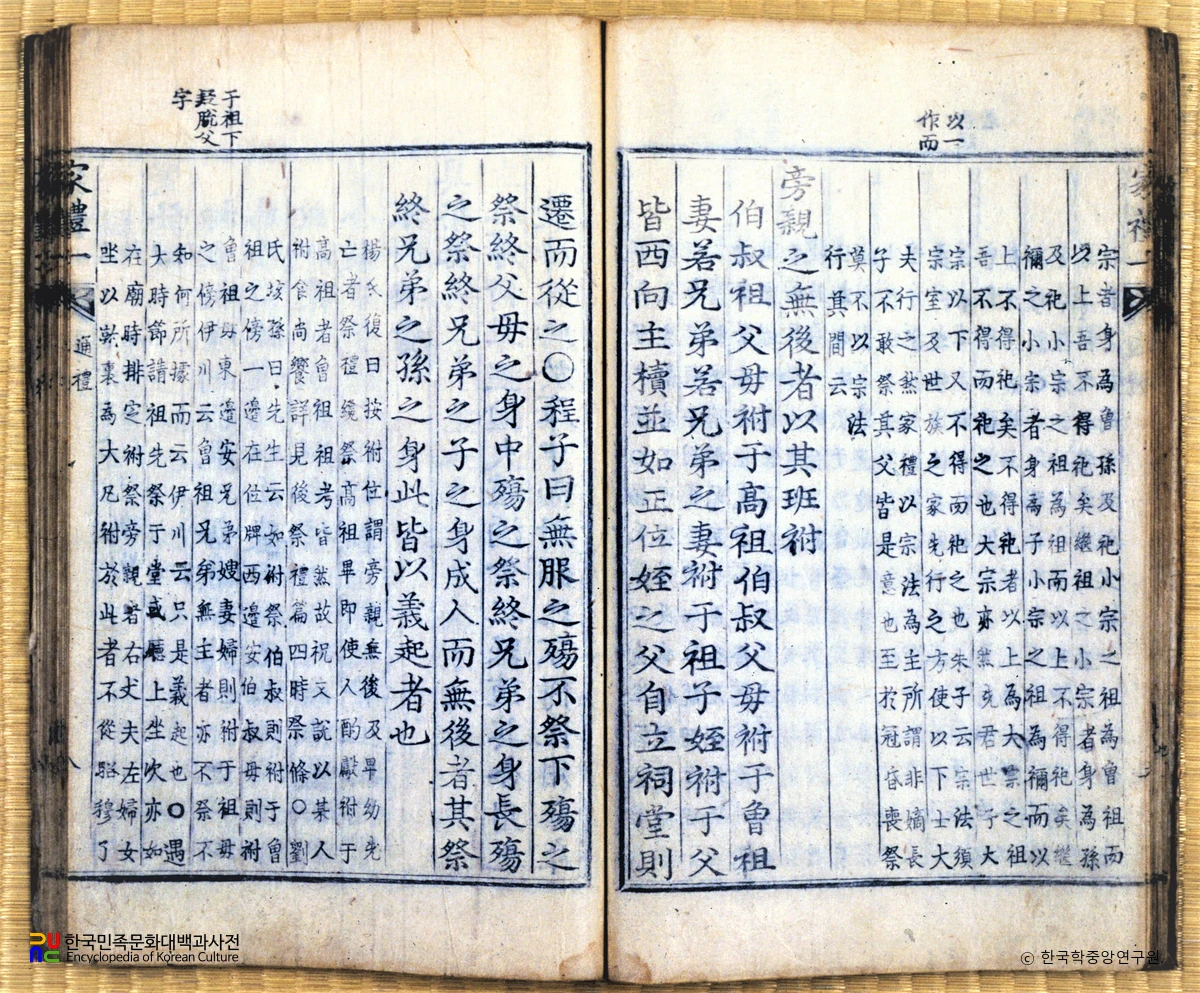 以一
作而
家禮一
宗者身為曾孫及祀小宗之祖為曾祖而
以上吾不得祀矣繼祖之小宗者身為孫
及祀小宗之祖為祖而以上不得祀矣繼
禰之小宗者身為子小宗之祖為禰而以
上不得祀矣不得祀者以上為大宗之祖
吾不得而祀之也大宗亦然先君世子大
宗以下又不得而祀之也朱子云宗法須
宗室及世族之家先行之方使以下士大
夫行之然家禮以宗法為主所謂非嫡長
子不敢祭其父皆是意也至於冠昏喪祭
莫不以宗法
行其間云
旁親之無後者以其班祔
伯叔祖父母祔于高祖伯叔父母祔于曾祖
妻若兄弟若兄弟之妻祔于祖子姪祔于父
皆西向主櫝並如正位姪之父自立祠堂則
于祖下
疑脫父
字
遷而從之○程子曰無服之殤不祭下殤之
祭終父母之身中殤之祭終兄弟之身長殤
之祭終兄弟之子之身成人而無後者其祭
終兄弟之孫之身此皆以義起者也
楊氏復曰按祔位謂旁親無後及卑幼先
亡者祭禮纔祭高祖畢即使人酌獻祔于
高祖者曾祖祖考皆然故祝文說以某人
祔食尚饗詳見後祭禮篇四時祭條○劉
氏垓孫曰先生云如祔祭伯叔則祔于曾
祖之傍一邊在位牌西邊安伯叔母則祔
曾祖母東邊安兄弟嫂妻婦則祔于祖母
之傍伊川云曾祖兄弟無主者亦不祭不
知何所據而云伊川云只是義起也○遇
大時節請祖先祭于堂或廳上坐次亦如
在廟時排定祔祭旁親者右丈夫左婦女
坐以就裏為大凡祔於此者不從昭穆了
家禮一
通禮
八
한국민족문화대백과사전
Encyclopedia of Korean Culture
ⓒ 한국학중앙연구원